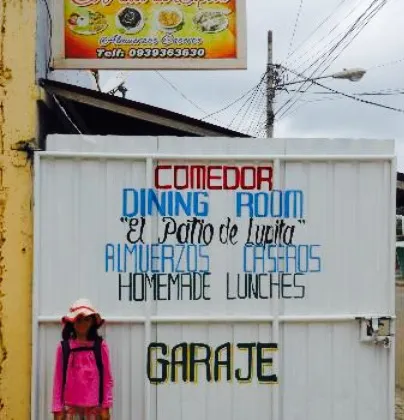 Almuerzos Caseros
Telf: 0939363630
COMEDOR
DINING ROOM
"El Patio de Lupita"
ALMUERZOS CASEROS
HOMEMADE LUNCHES
GARAJE